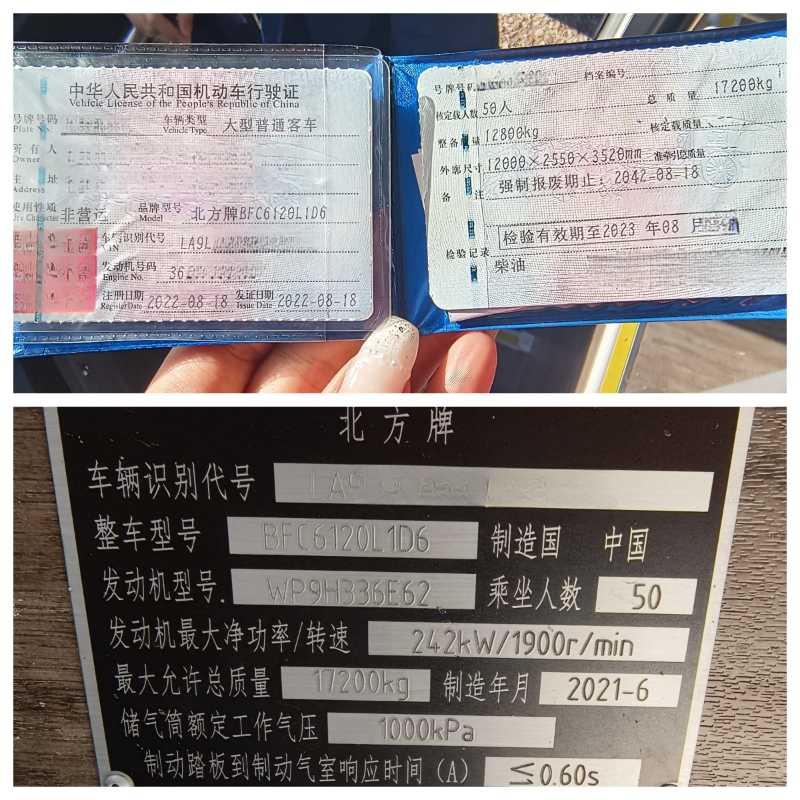 中华人民共和国机动车行驶证
Vehicle License of the People's Republic of China
号牌号码
Plate No.
车辆类型 大型普通客车
Vehicle Type
所有人
Owner
住址
Address
使用性质 非营运
Use Character
品牌型号 北方牌BFC6120L1D6
Model
车辆识别代号 LA9L
VIN
发动机号码 36
Engine No.
注册日期 2022-08-18 发证日期 2022-08-18
Register Date Issue Date
号牌号码 档案编号
核定载人数 50人 总质量 17200kg
整备质量 12800kg 核定载质量
外廓尺寸 12000×2550×3520mm 准牵引总质量
备注 强制报废期止：2042-08-18
检验有效期至2023 年08 月
检验记录
柴油
北方牌
车辆识别代号 LA9
整车型号 BFC6120L1D6 制造国 中国
发动机型号 WP9H336E62 乘坐人数 50
发动机最大净功率/转速 242kW/1900r/min
最大允许总质量 17200kg 制造年月 2021-6
储气筒额定工作气压 1000kPa
制动踏板到制动气室响应时间 (A) ≤0.60s